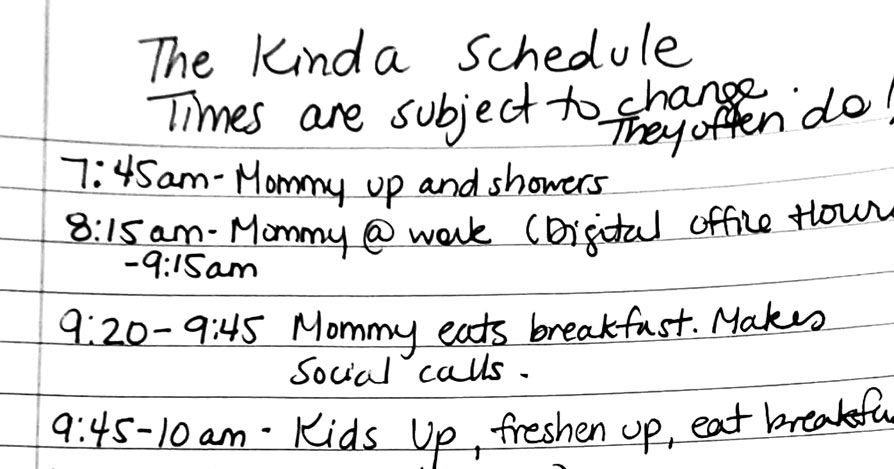 The Kinda Schedule
Times are subject to change.
They often do!
7:45am - Mommy up and showers
8:15am - Mommy @ work (Digital office Hour
- 9:15am
9:20 - 9:45 Mommy eats breakfast. Makes
Social calls.
9:45-10am - Kids Up, freshen up, eat breakfa